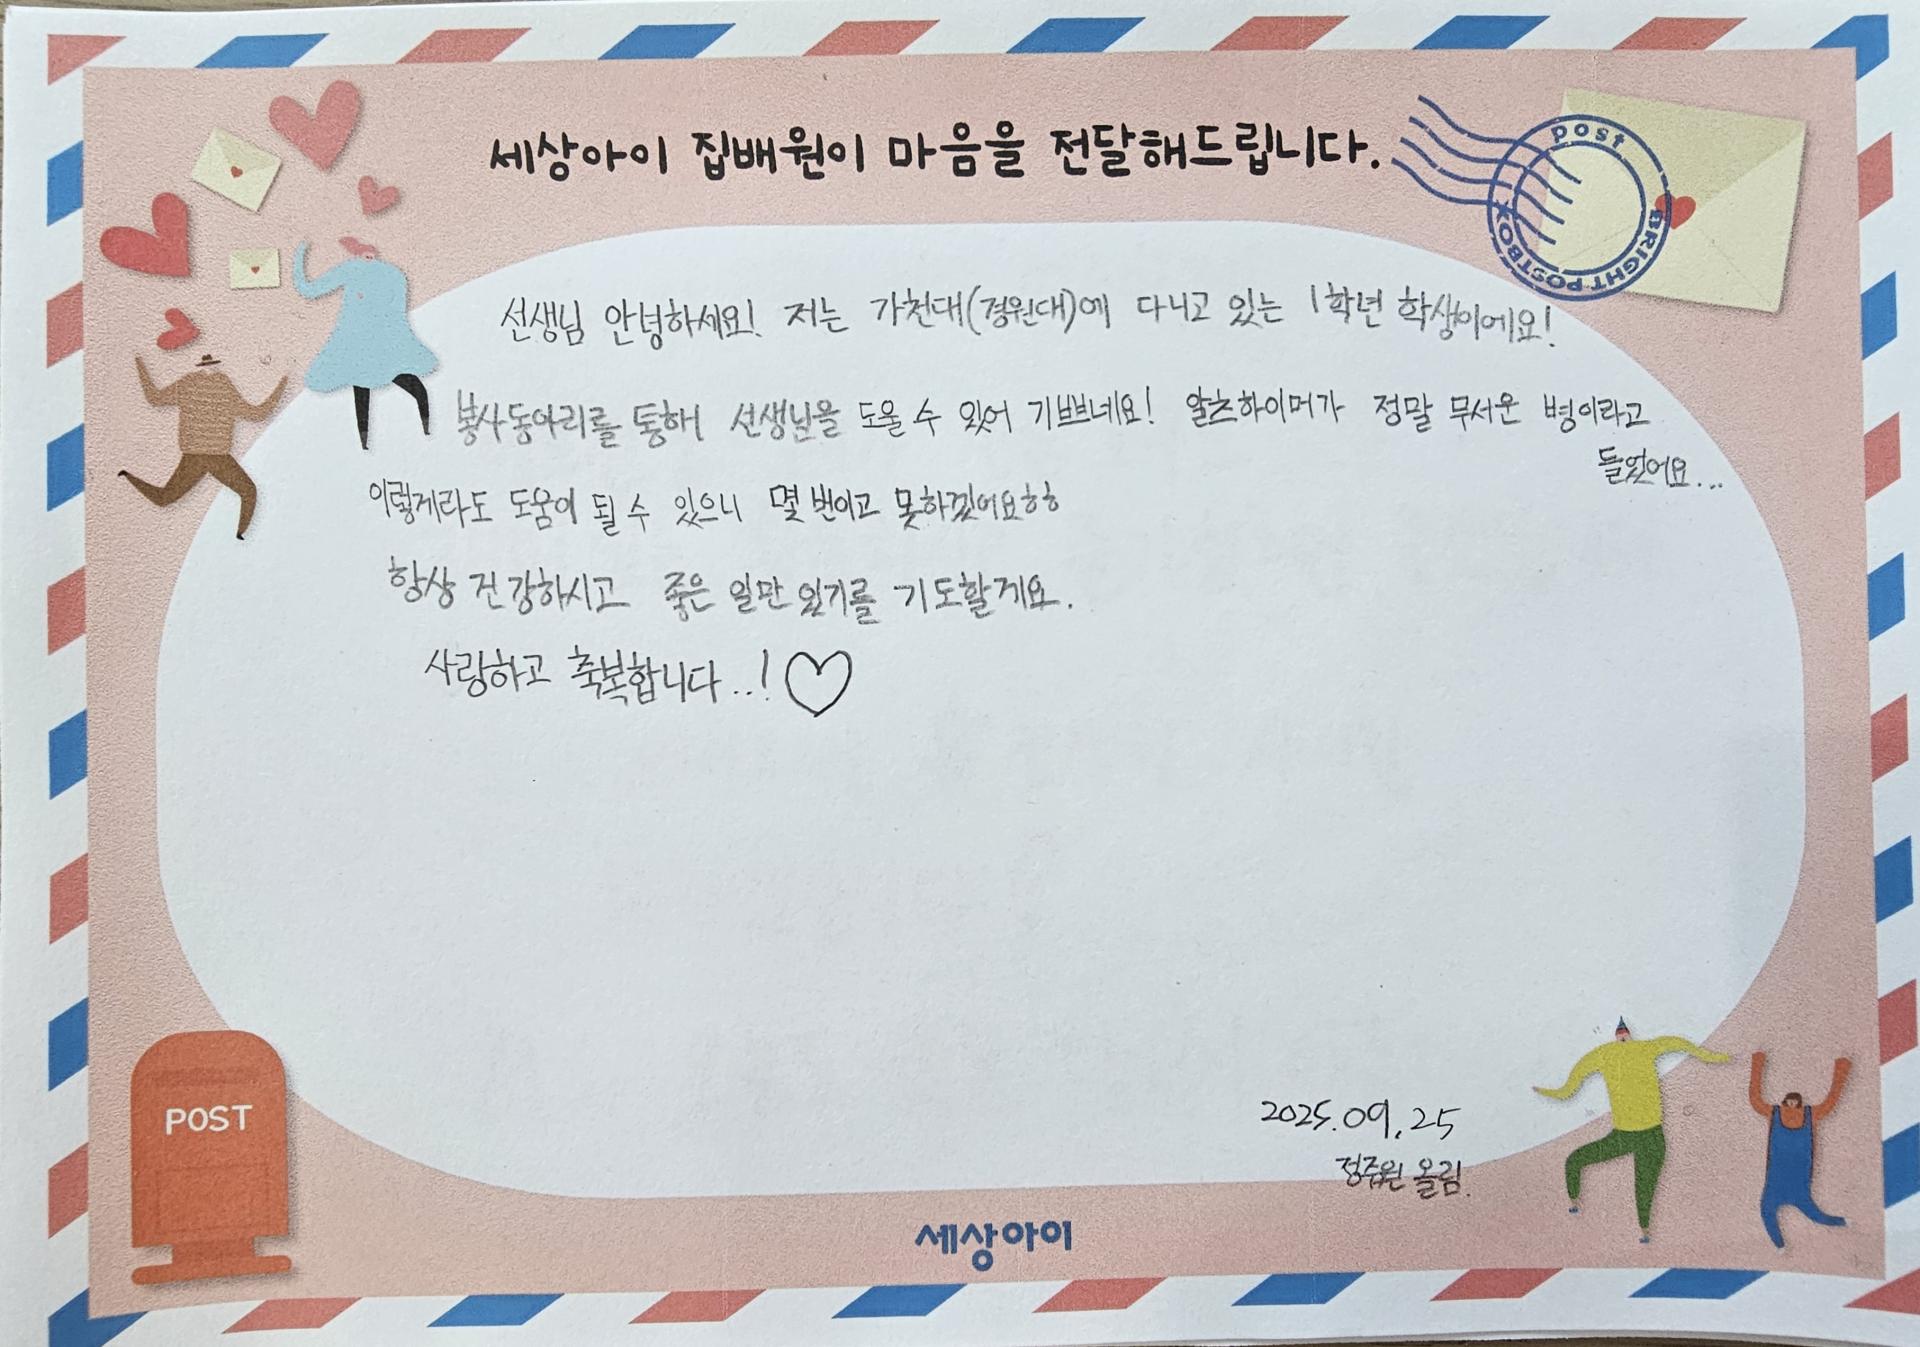 세상아이 집배원이 마음을 전달해드립니다.
post
BRIGHT POSTBOX
선생님 안녕하세요! 저는 가천대(경원대)에 다니고 있는 1학년 학생이에요!
봉사동아리를 통해 선생님을 도울 수 있어 기쁘네요! 알츠하이머가 정말 무서운 병이라고
들었어요...
이렇게라도 도움이 될 수 있으니 몇 번이고 못하겠어요ㅎㅎ
항상 건강하시고 좋은 일만 있기를 기도할게요.
사랑하고 축복합니다..!♡
POST
2025.09.25
정주원 올림.
세상아이